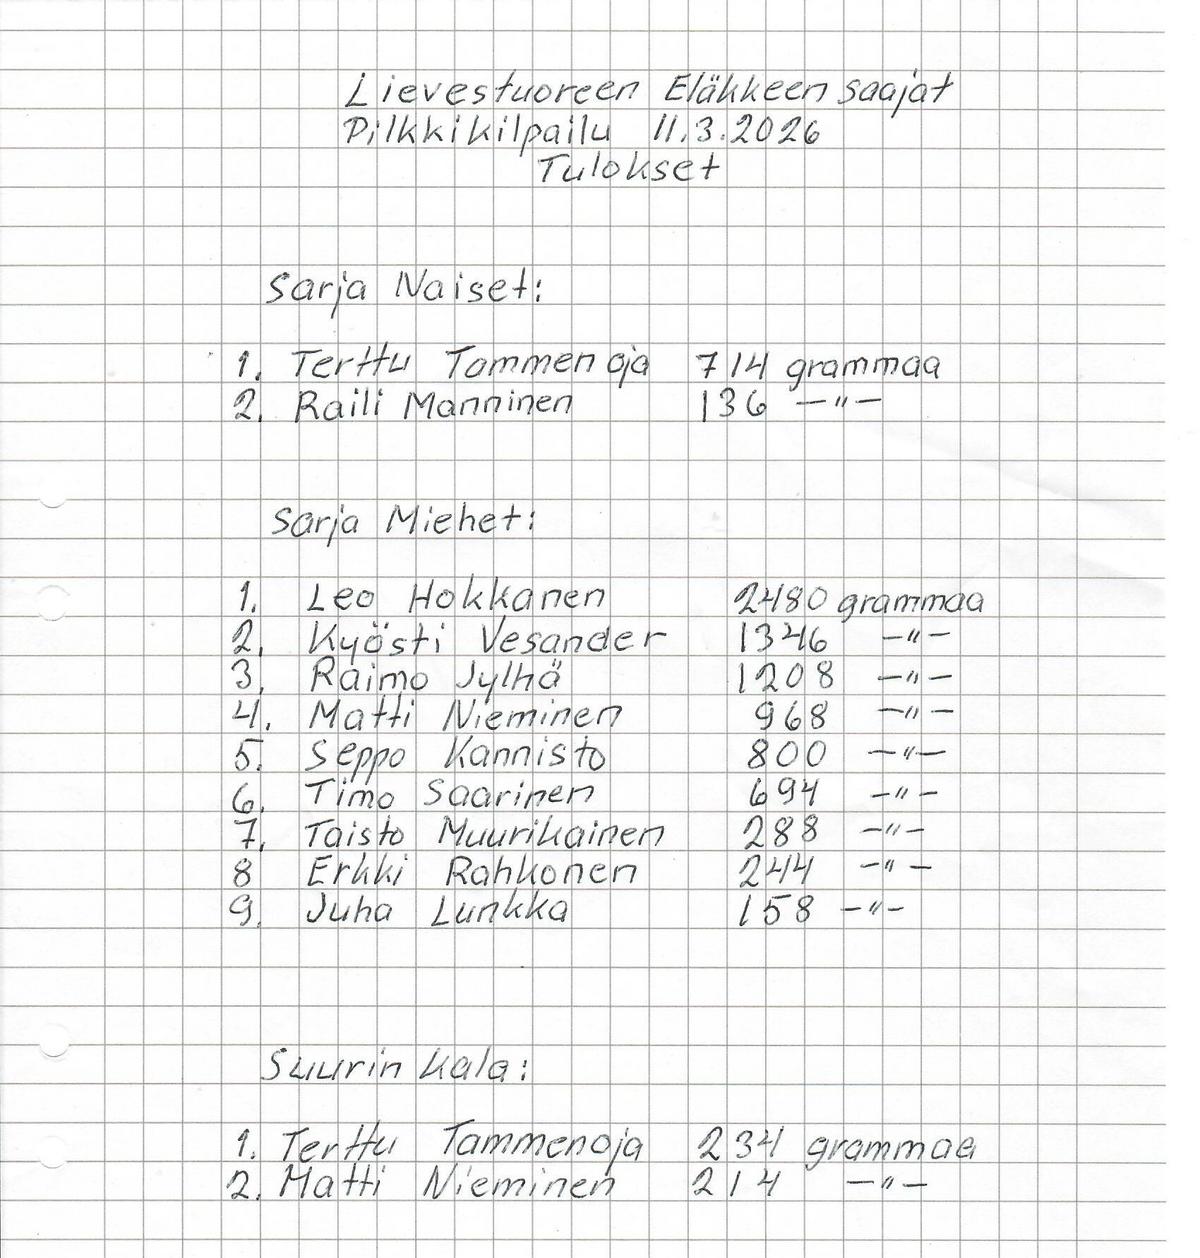 Lievestuoreen Eläkkeen saajat
Pilkkikilpailu 11.3.2026
Tulokset
Sarja Naiset:
1. Terttu Tammenoja 714 grammaa
2. Raili Manninen 136 —"—
Sarja Miehet:
1. Leo Hokkanen 2480 grammaa
2. Kyösti Vesander 1346 —"—
3. Raimo Jylhä 1208 —"—
4. Matti Nieminen 968 —"—
5. Seppo Kannisto 800 —"—
6. Timo Saarinen 694 —"—
7. Taisto Muurikainen 288 —"—
8 Erkki Rahkonen 244 —"—
9. Juha Lunkka 158 —"—
Suurin kala:
1. Terttu Tammenoja 234 grammaa
2. Matti Nieminen 214 —"—